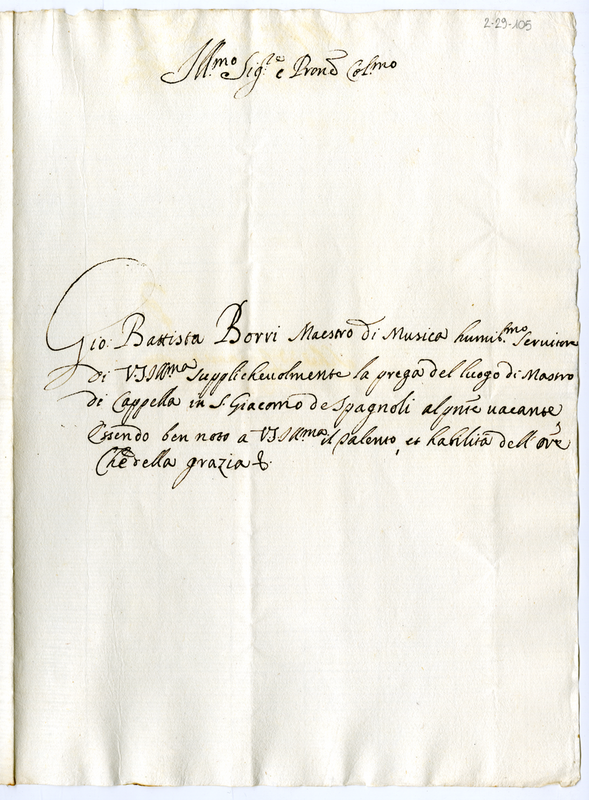 2-29-105
Ill.mo Sig.re e Prone Col.mo
Gio: Battista Borri Maestro di Musica humil.mo Servitore
di VS Illma supplichevolmente la prega del luogo di Mastro
di Cappella in S. Giacomo de Spagnoli al pnte vacante
Essendo ben noto a VS Illma il talento, et habilità dell' ore
Che della grazia &.